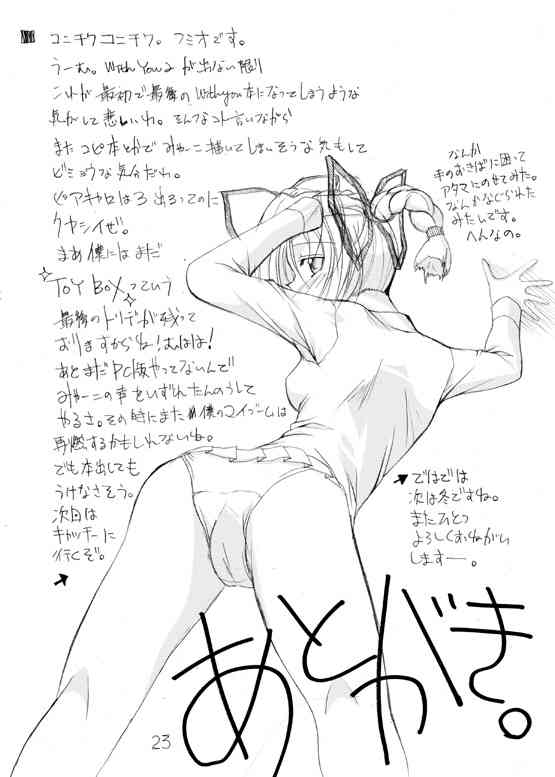 コニチワコニチワ。フミオです。
うーむ。With You2 が出ない限り
これが最初で最後のwithyou本になってしまうような
気がして悲しいわ。そんなコト言いながら
またコピ本とかでみゃーこ描いてしまいそうな気もして
ビミョウな気分だわ。
ピアキャロは3出るってのに
クヤシイぜ。
まあ僕にはまだ
TOY BOXっていう
最後のトリデが残って
おりますからね!むはは!
あとまだPC版やってないんで
みゃーこの声をいずれたんのうして
やるさ。その時にまた僕のマイブームは
再燃するかもしれないね。
でも本出しても
うけなさそう。
次回は
キャッチーに
行くぞ。
なんか
手のおきばに困って
アタマにのせてみた。
なんかなぐられた
みたいです。
へんなの。
ではでは
次は冬ですね。
またひとつ
よろしくおねがい
しますー。
あとがき。
23